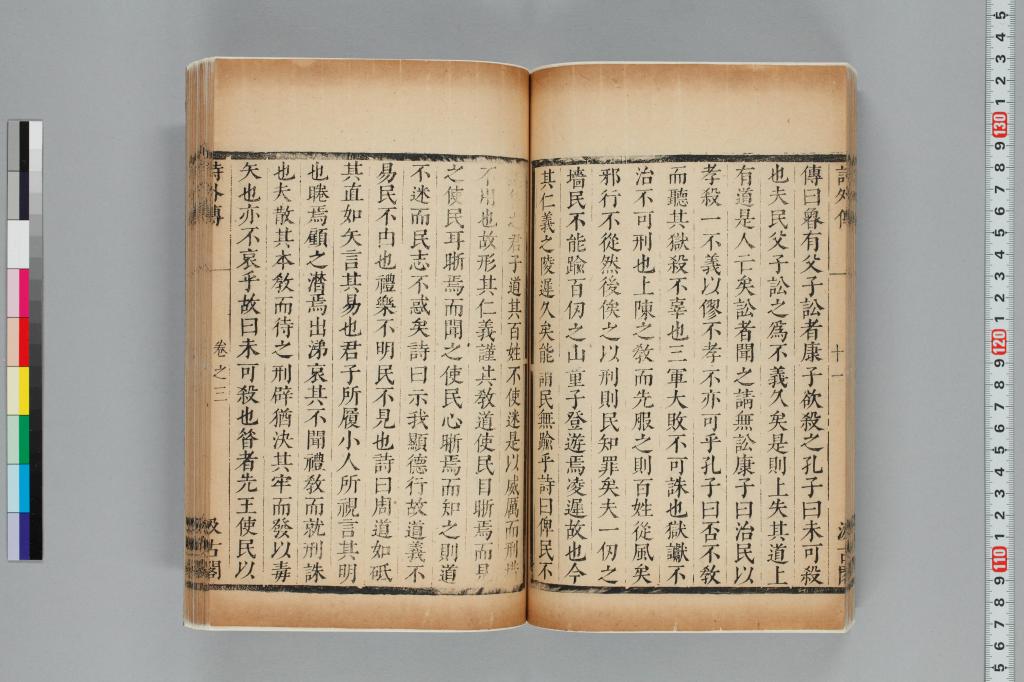 詩外傳
十一
汲古閣
傳曰魯有父子訟者康子欲殺之孔子曰未可殺
也夫民父子訟之爲不義久矣是則上失其道上
有道是人亡矣訟者聞之請無訟康子曰治民以
孝殺一不義以僇不孝不亦可乎孔子曰否不敎
而聽其獄殺不辜也三軍大敗不可誅也獄讞不
治不可刑也上陳之敎而先服之則百姓從風矣
邪行不從然後俟之以刑則民知罪矣夫一仞之
墻民不能踰百仞之山童子登遊焉凌遲故也今
其仁義之陵遲久矣能謂民無踰乎詩曰俾民不
之君子道其百姓不使迷是以威厲而刑
不用也故形其仁義謹其敎道使民目晣焉而見
之使民耳晣焉而聞之使民心晣焉而知之則道
不迷而民志不惑矣詩曰示我顯德行故道義不
易民不由也禮樂不明民不見也詩曰周道如砥
其直如矢言其易也君子所履小人所視言其明
也睠焉顧之潸焉出涕哀其不聞禮敎而就刑誅
也夫散其本敎而待之刑辟猶決其牢而發以毒
矢也亦不哀乎故曰未可殺也昝者先王使民以
詩外傳
卷之三
汲古閣
5
4
3
2
1
130
9
8
7
6
5
4
3
2
1
120
9
8
7
6
5
4
3
2
1
110
9
8
7
6
5